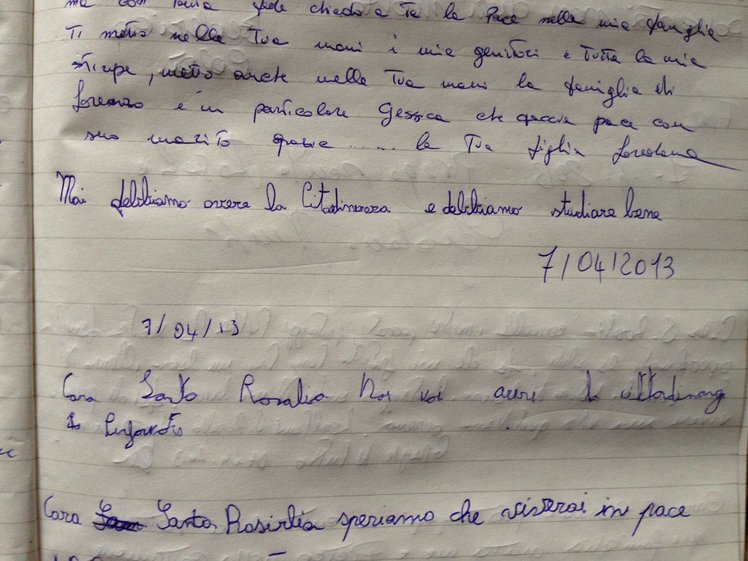 ma con tanta fede chiedo a Te la Pace nella mia famiglia
Ti metto nelle Tua mani i mia genitori e Tutta la mia
stirpe, metto anche nelle Tua mani la famiglia di
Lorenzo e in particolare Gessica che faccia pace con
suo marito grazie ...... la Tua figlia Loredana
Mai debbiamo avere la Cittadinanza e debbiamo studiare bene
7/04/2013
7/04/13
Cara Santo Rosalia Noi voi avere
Cara Santa Rosirlia speriamo che visterai in pace